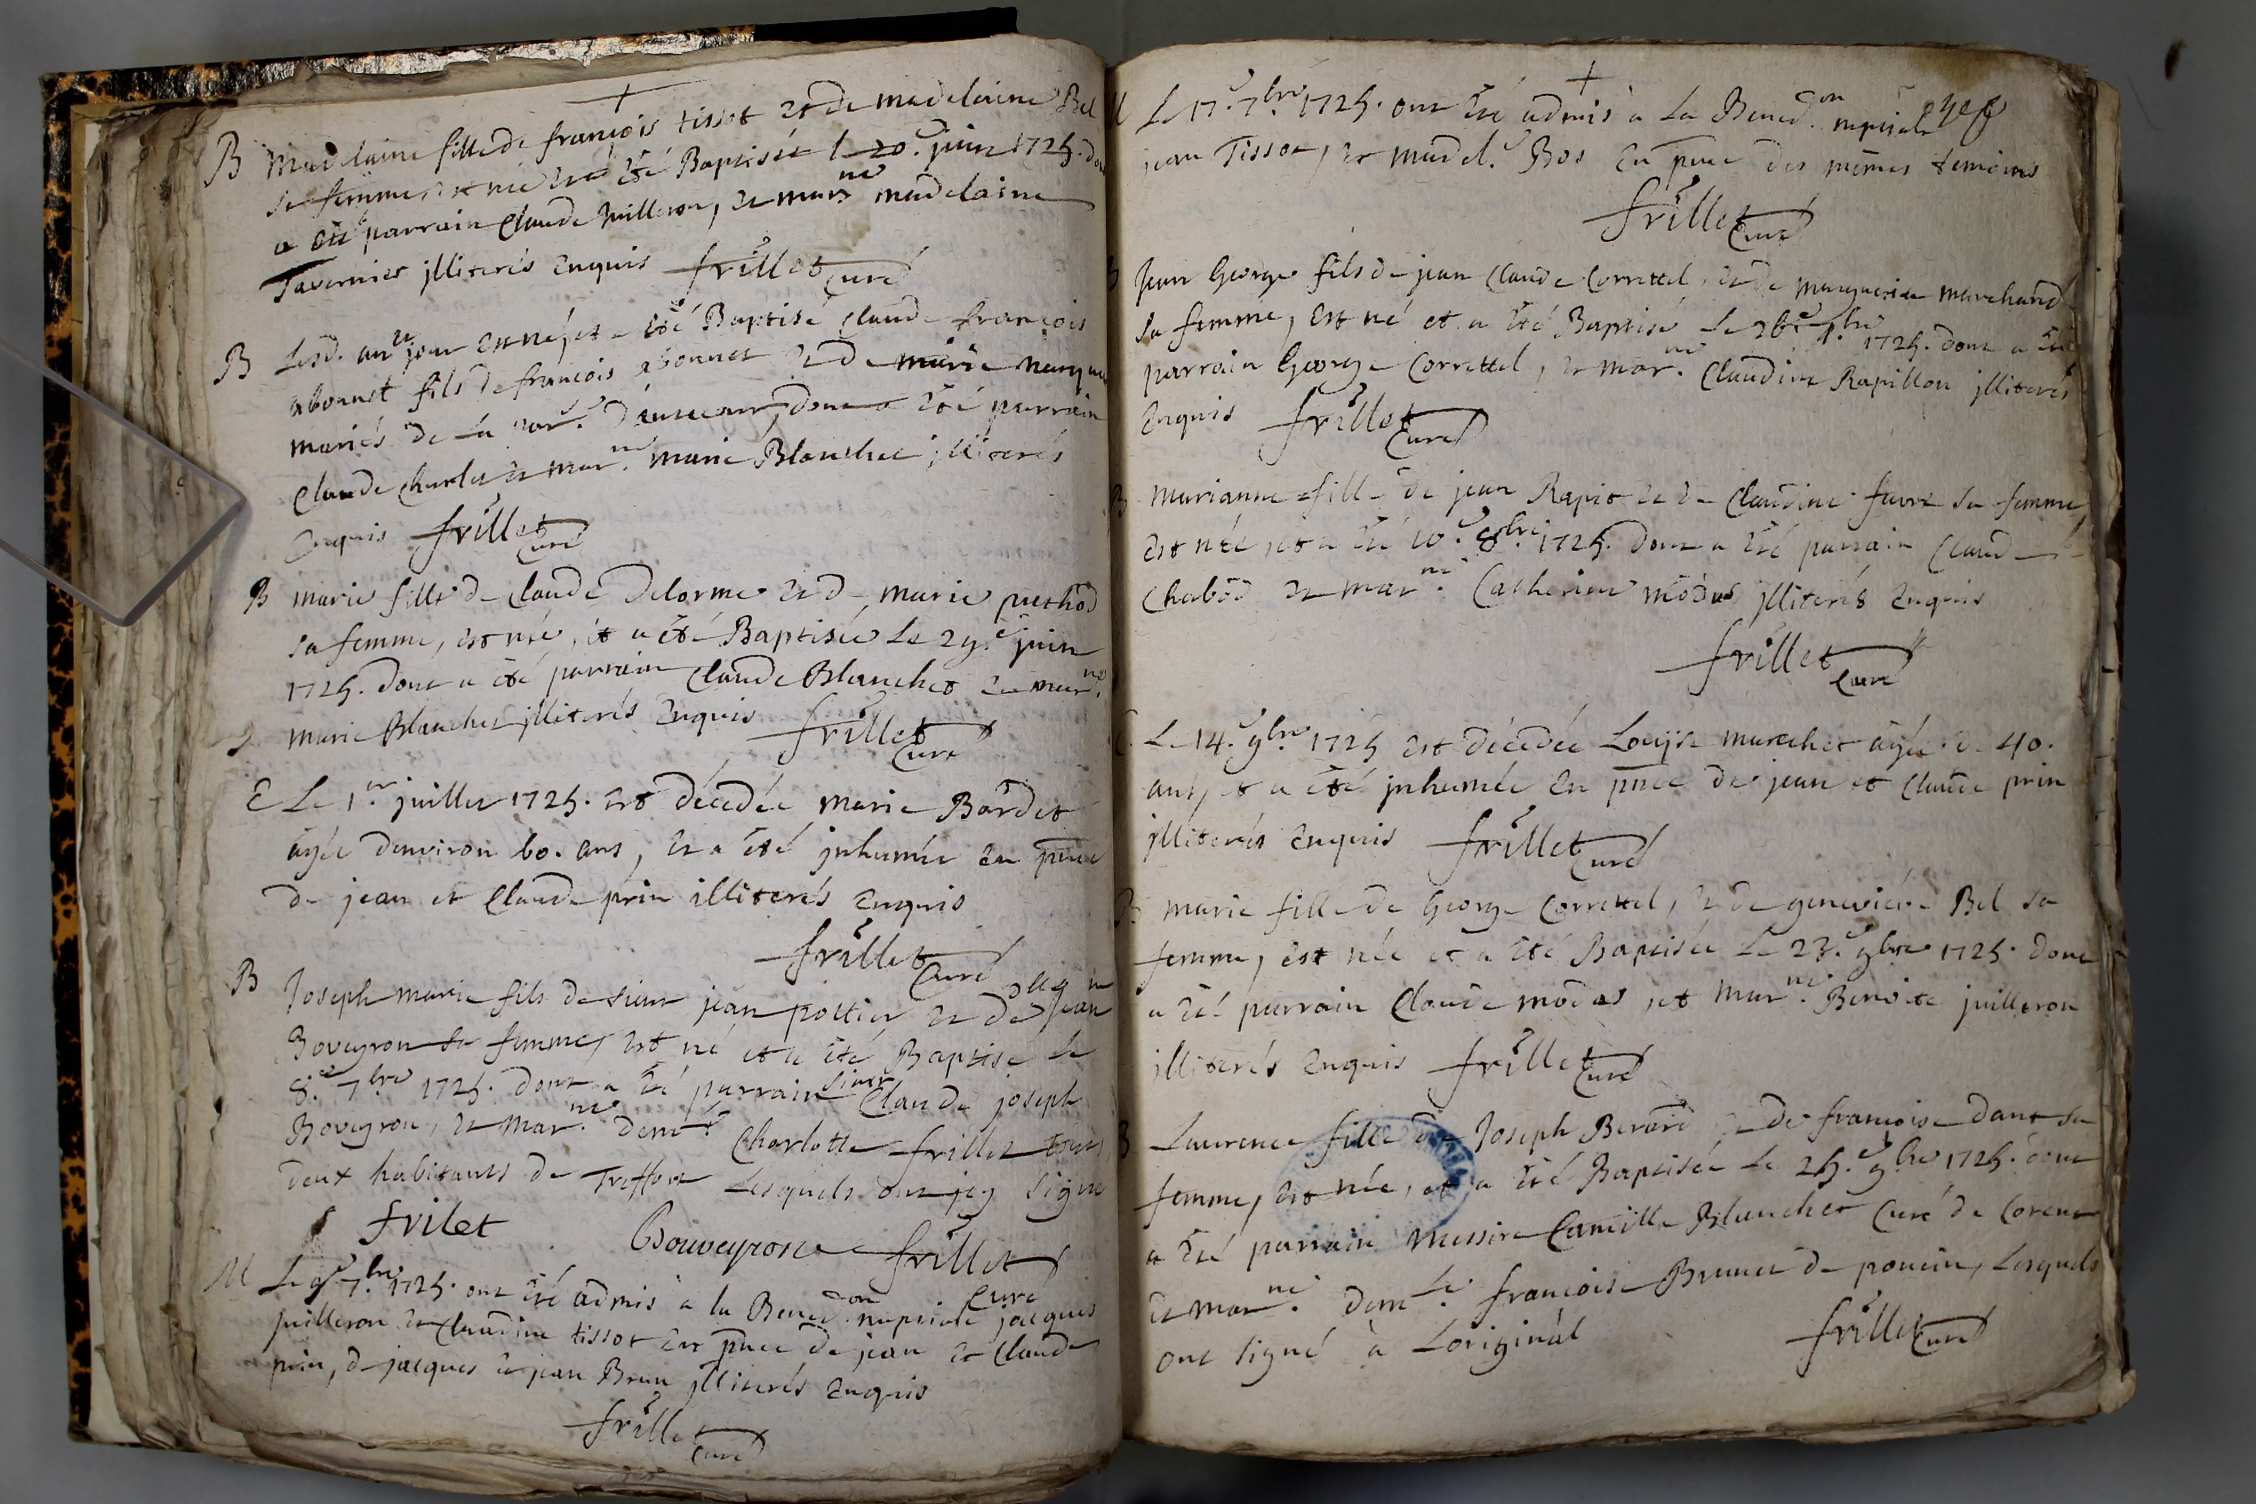 B Madelaine fille de françois tissot et de madelaine Bel
sa femme, est née et a été Baptisée le 20.e juin 1725. dont
a été parrain Claude Juilleron, et marr.ne madelaine
Tavernier jlliterés enquis frillet Curé
B Lesd. an et jour est né, et a été Baptisé Claude françois
abonnet fils de françois abonnet et de marie
mariés de la par.e dont a été parrain
Claude Charlet et mar.ne marie Blanchet jlliterés
enquis frillet Curé
B marie fille de Claude Delorme et de marie
sa femme, est née, et a été Baptisée le 29.e juin
1725. dont a été parrain Claude Blanchet et mar.ne
marie Blanchet jlliterés enquis frillet Curé
E Le 1.er juillet 1725. est décédée marie Bardet
âgée denviron 60. ans, et a été jnhumée en pnce
de jean et Claude prin illiterés enquis
frillet Curé
B Joseph marie fils de sieur jean pottier et de
Boveyron sa femme, est né et a été Baptisé le
8.e 7.bre 1725. dont a été parrain sieur Claude joseph
Boveyron, et mar.ne dem.lle Charlotte frillet tous
deux habitants de Treffort Lesquels ont jcy signé
frilet Bouveyron frillet Curé
M Le 9.e 7.bre 1725. ont été admis a la Bened.on nuptiale jacques
juilleron et Claudine tissot en pnce de jean et Claude
prin, de jacques et jean Brun jlliterés enquis
frillet Curé
M Le 17.e 7.bre 1725. ont été admis a La Bened.on nuptiale
jean Tissot, et madel.e Bos en pnce des mêmes temoins
frillet Curé
B Jean George fils de jean Claude Correttel, et de marguerite marchand
sa femme, est né et a été Baptisé Le 26.e 7.bre 1725. dont a été
parrain George Correttel, et mar.ne Claudine Rapillon jlliterés
enquis frillet Curé
B Marianne fille de jean Rapit et de Claudine favre sa femme
est née, et a été 10.e 8.bre 1725. dont a été parrain Claude
Chabod et mar.ne Catherine modas jlliterés enquis
frillet Curé
E Le 14.e 9.bre 1725 est décédée Louyse marechet âgée de 40.
ans, et a été jnhumée en pnce de jean et Claude prin
jlliterés enquis frillet Curé
B marie fille de George Correttel, et de genevieve Bel sa
femme, est née et a été Baptisée Le 23.e 9.bre 1725. dont
a été parrain Claude modas, et mar.ne Benoite juilleron
illiterés enquis frillet Curé
B Laurence fille de Joseph Berard et de françoise dant sa
femme, est née, et a été Baptisée Le 25.e 9.bre 1725. dont
a été parrain messire Camille Blanchet Curé de Corent
et mar.ne dem.lle françoise Brunet de poncin, Lesquels
ont signé à Loriginal frillet Curé